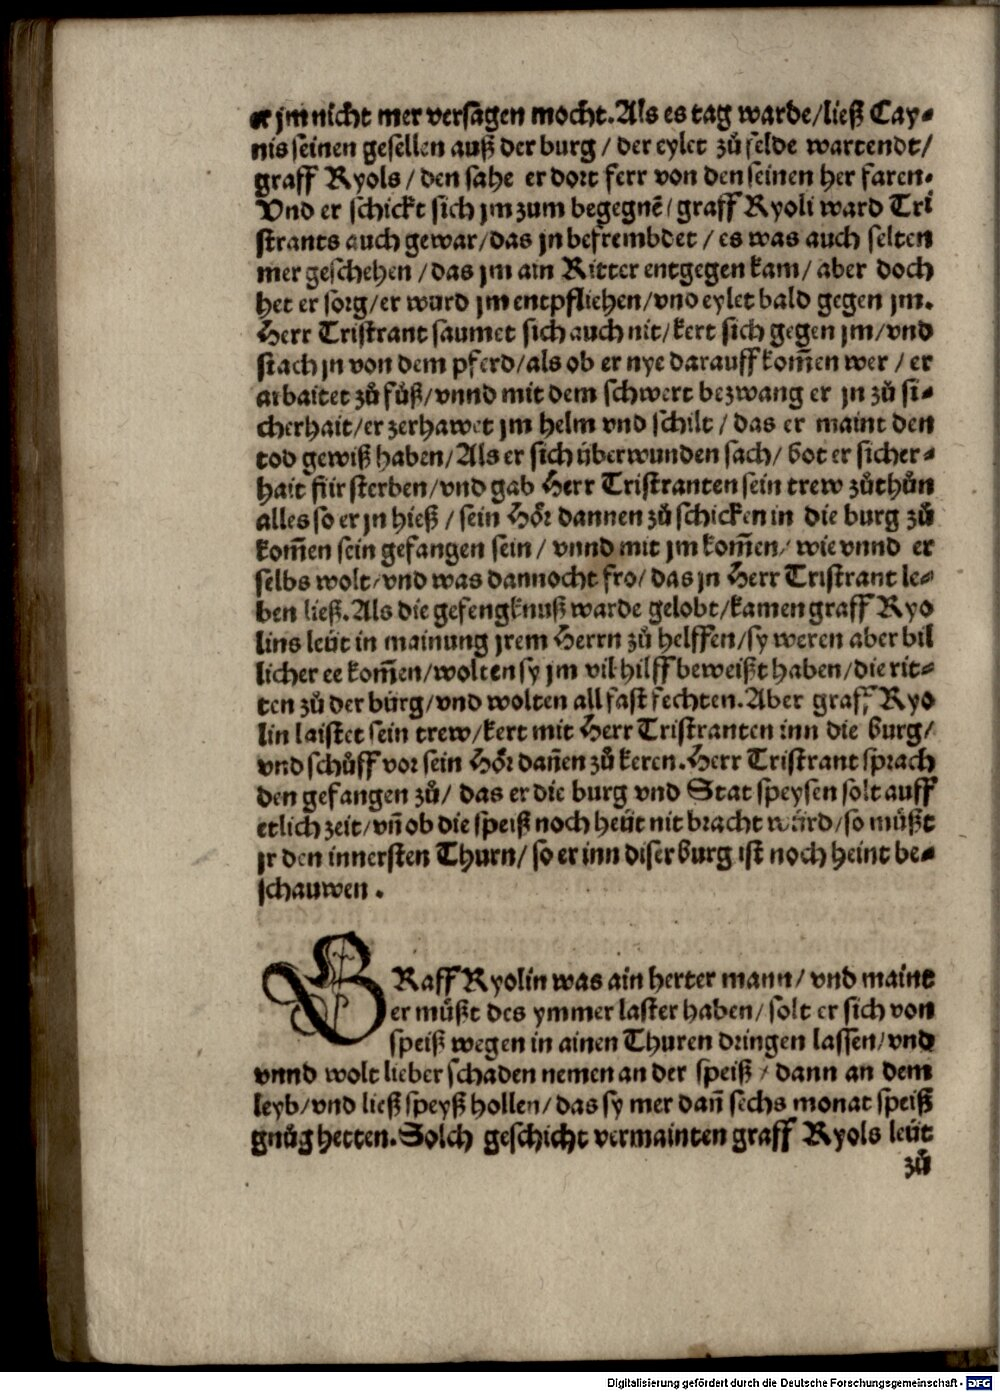 er jm nicht mer versagen mocht. Als es tag warde/ ließ Cay⸗
nis seinen gesellen auß der burg / der eylet zů felde wartendt/
graff Ryols / den sahe er dort ferr von den seinen her faren.
Vnd er schickt sich jm zum begegnē/ graff Ryoli ward Tri
strants auch gewar/ das jn befrembdet / es was auch selten
mer geschehen / das jm ain Ritter entgegen kam/ aber doch
het er sorg/ er wurd jm entpfliehen/ vnd eylet bald gegen jm.
Herr Tristrant saumet sich auch nit/ kert sich gegen jm/ vnd
stach jn von dem pferd/ als ob er nye darauff kom̄en wer / er
arbaitet zů fůß/ vnnd mit dem schwert bezwang er jn zů si⸗
cherhait/ er zerhawet jm helm vnd schilt / das er maint den
tod gewiß haben/ Als er sich überwunden sach/ bot er sicher⸗
hait für sterben/ vnd gab Herr Tristranten sein trew zůthůn
alles so er jn hieß / sein Hör dannen zů schicken in die burg zů
kom̄en sein gefangen sein / vnnd mit jm kom̄en/ wie vnnd er
selbs wolt/ vnd was dannocht fro/ das jn Herr Tristrant le⸗
ben ließ. Als die gefengknuß warde gelobt/ kamen graff Ryo
lins leüt in mainung jrem Herrn zů helffen/ sy weren aber bil
licher ee kom̄en/ wolten sy jm vil hilff beweißt haben/ die rit⸗
ten zů der bürg/ vnd wolten all fast fechten. Aber graff Ryo
lin laistet sein trew/ kert mit Herr Tristranten inn die burg/
vnd schůff vor sein Hör dan̄en zů keren. Herr Tristrant sprach
den gefangen zů/ das er die burg vnd Stat speysen solt auff
etlich zeit/ vn̄ ob die speiß noch heüt nit bracht würd/ so můßt
jr den innersten Thurn/ so er inn diser burg ist noch heint be⸗
schauwen .
GRaff Ryolin was ain herter mann/ vnd maint
er müßt des ymmer laster haben/ solt er sich von
speiß wegen in ainen Thuren dringen lassen/ vnd
vnnd wolt lieber schaden nemen an der speiß / dann an dem
leyb/ vnd ließ speyß hollen/ das sy mer dan̄ sechs monat speiß
gnůg hetten. Solch geschicht vermainten graff Ryols leüt
zů
Digitalisierung gefördert durch die Deutsche Forschungsgemeinschaft - DFG